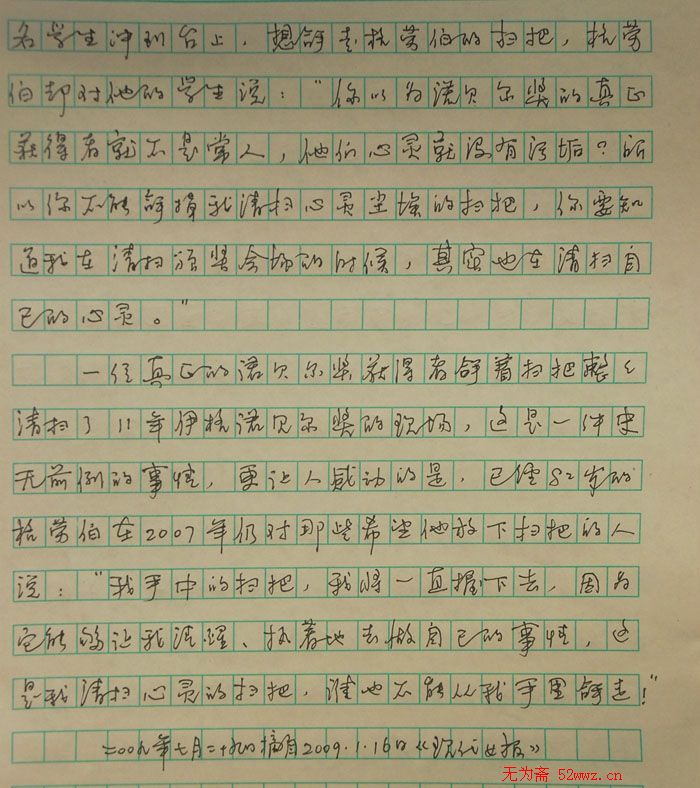 名学生冲到台上，想夺走格劳伯的扫把，格劳
伯却对他的学生说：“你以为诺贝尔奖的真正
获得者就不是常人，他们心灵就没有污垢？所
以你不能夺掉我清扫心灵尘埃的扫把，你要知
道我在清扫颁奖会场的时候，其实也在清扫自
己的心灵。”
一位真正的诺贝尔奖获得者拿着扫把整整
清扫了11年伊格诺贝尔奖的现场，这是一件史
无前例的事情，更让人感动的是，已经82岁的
格劳伯在2007年仍对那些希望他放下扫把的人
说：“我手中的扫把，我将一直握下去，因为
它能够让我清醒、执着地去做自己的事情，这
是我清扫心灵的扫把，谁也不能从我手里夺走！”
二00九年七月二十九日摘自2009.1.16日《现代女报》
无为斋 52wwz.cn